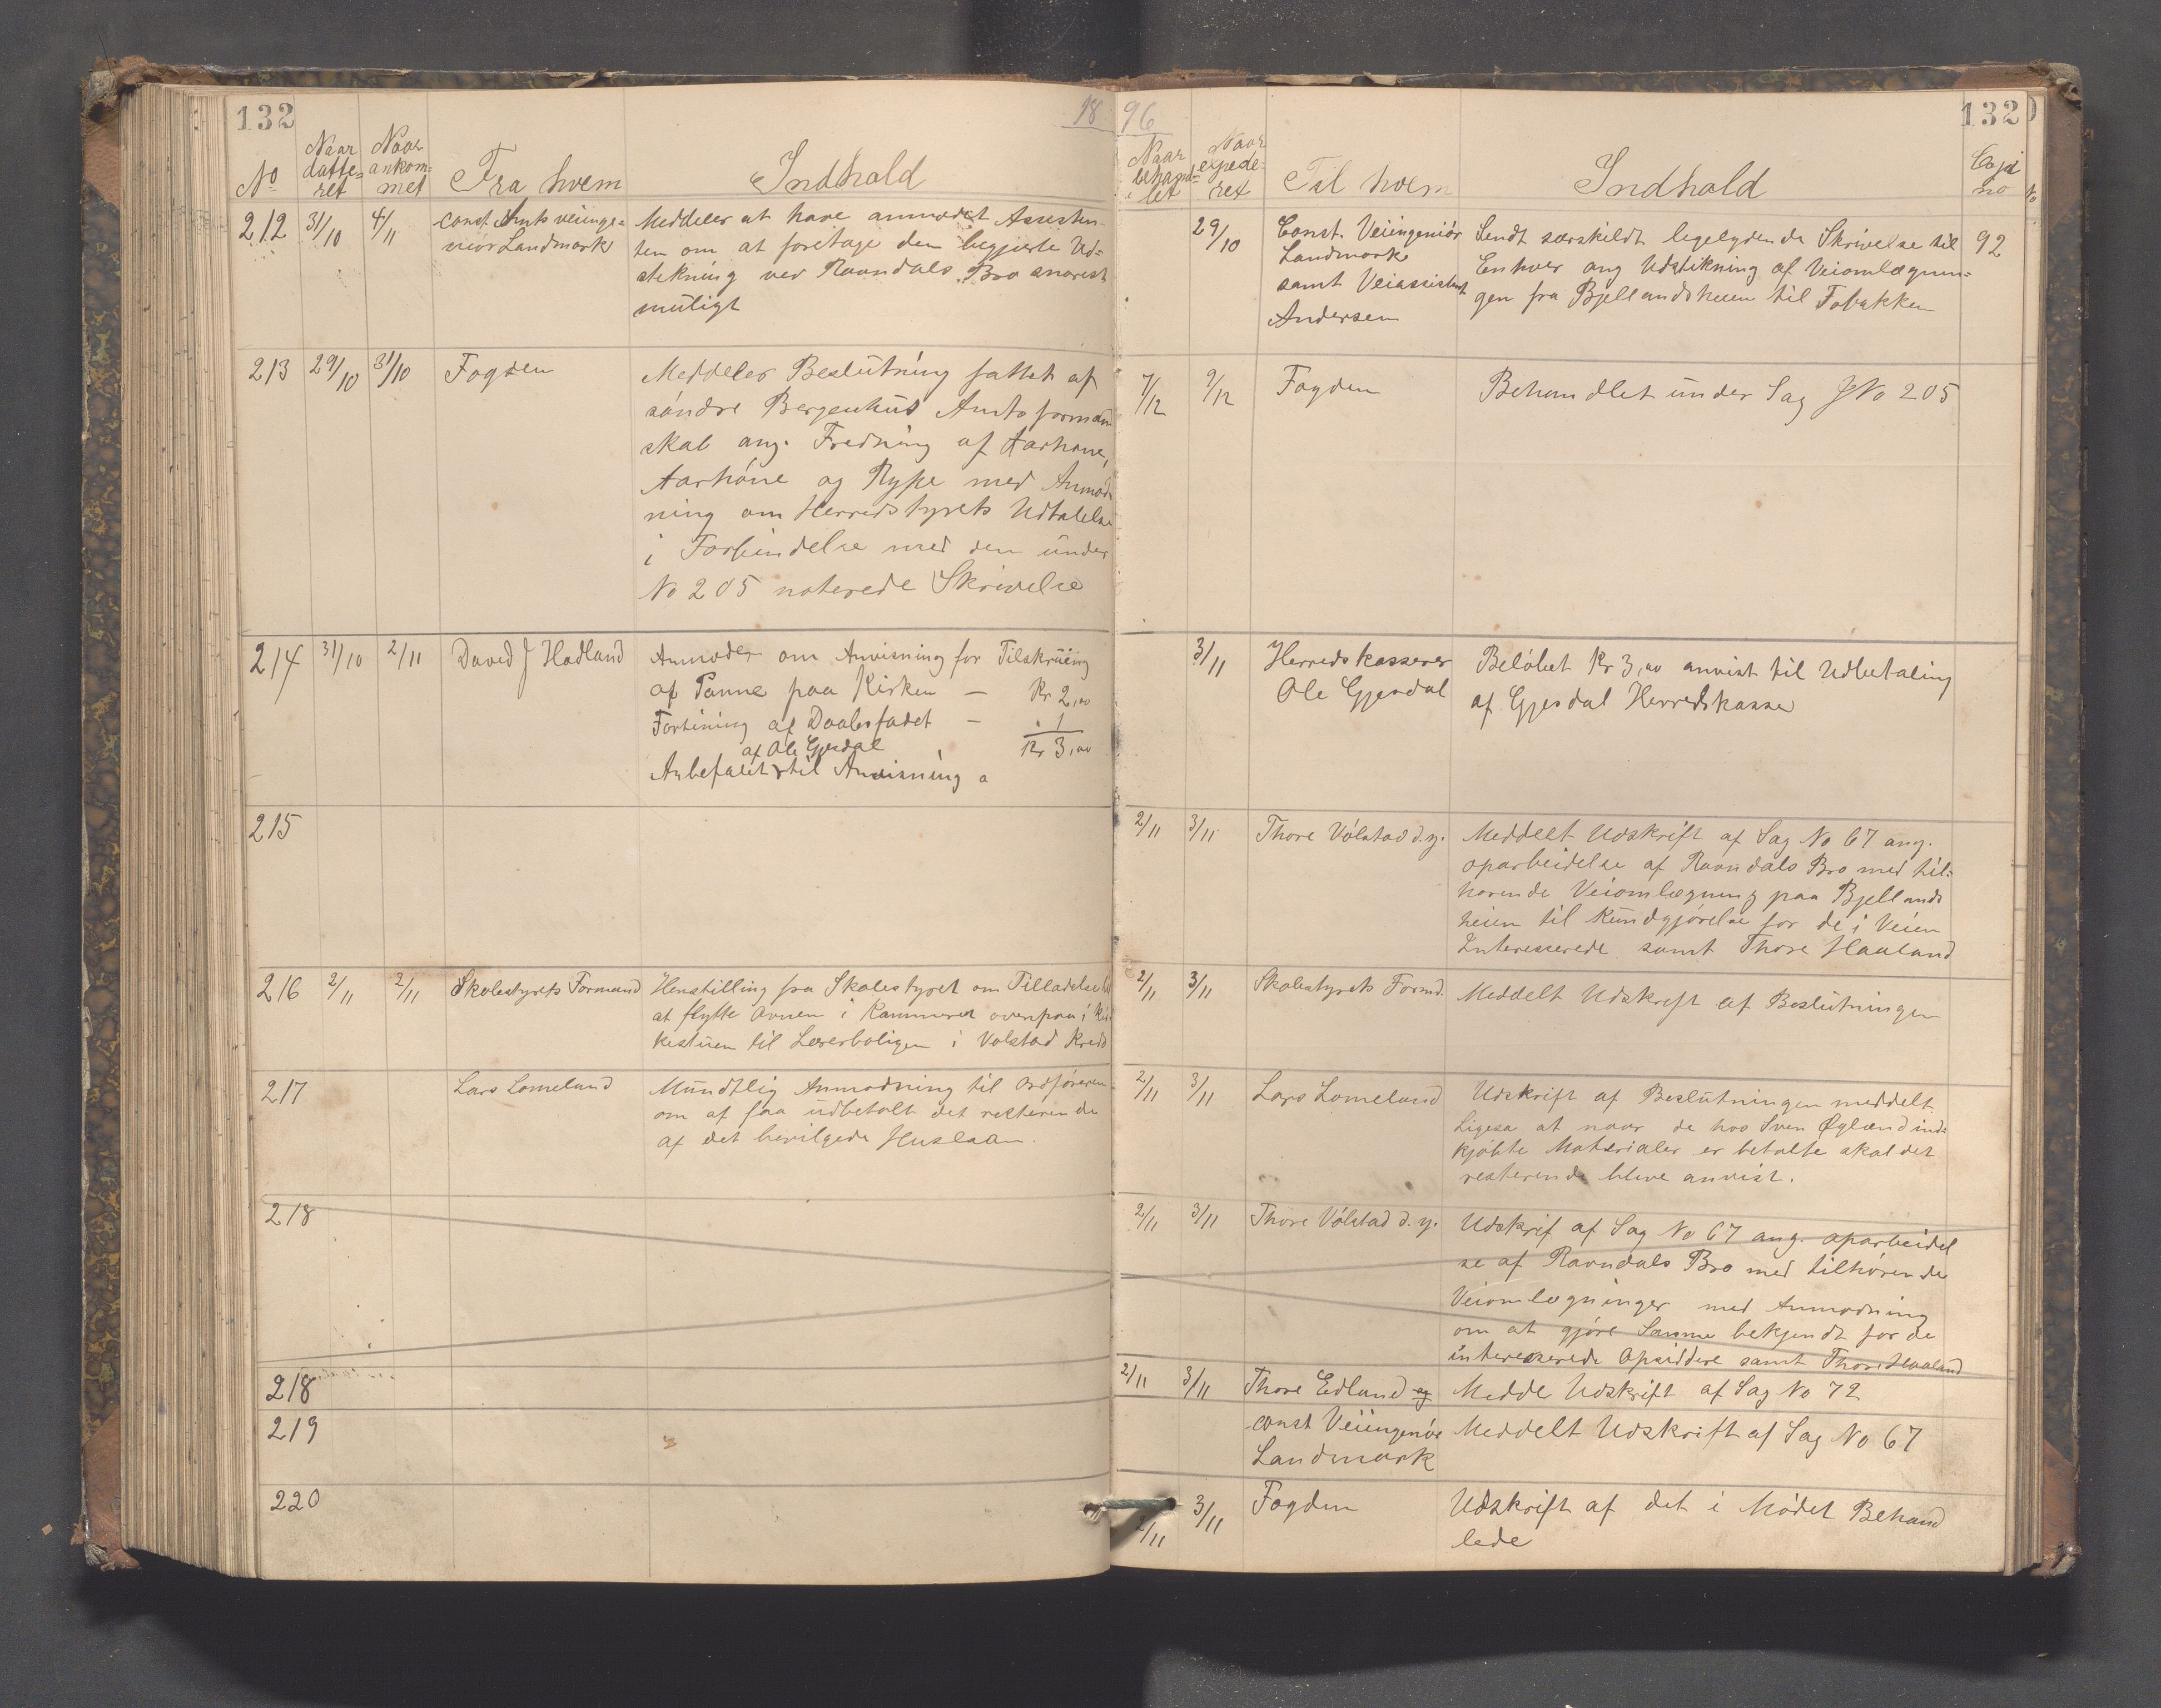 132
18 96
132
No Naar datte=ret Naar ankom=met Fra hvem Indhold
Naar behand=let Naar expede=ret Til hvem Indhold Copi no
212 31/10 4/11 const. Amts veiinge=
niör Landmark
Meddeler at have anmodet Assisten
ten om at foretage den begjerte Ud=
stekning ved Ravndals Bro snarest
muligt
29/10 Const. Veiingeniör
Landmark
samt Veiassistent
Andersen
Sendt særskildt ligelydende Skrivelse til
Enhver ang Udstikning af Veiomlægnin=
gen fra Bjellandsheien til Fobakken
92
213 29/10 31/10 Fogden
Meddeler Beslutning fattet af
söndre Bergenhus Amtsformand
skab ang. Fredning af Aarhane,
Aarhöne og Rype med Anmod=
ning om Herredstyrets Udtalelse
i Forbindelse med den under
No 205 noterede Skrivelse
7/12 9/12 Fogden
Behandlet under Sag JNo 205
214 31/10 2/11 David J Hadland
Anmoder om Anvisning for Tilskruing
af Panne paa Kirken — Kr 2,00
Fortining af Daabsfadet — " 1
af Ole Gjesdal Kr 3,00
Anbefalet til Anvisning a
3/11 Herredskasserer
Ole Gjesdal
Belöbet Kr 3,00 anvist til Udbetaling
af Gjesdal Herredskasse
215
2/11 3/11 Thore Völstad d.y.
Meddelt Udskrift af Sag No 67 ang.
oparbeidelse af Ravndals Bro med til=
hørende Veiomlægning paa Bjellands
heien til Kundgjörelse for de i Veien
Interesserede samt Thore Haaland
216 2/11 2/11 Skolestyrets Formand
Henstilling fra Skolestyret om Tilladelse til
at flytte Ovnen i Kammeret ovenpaa i Kir
kestuen til Lærerboligen i Volstad Kreds
2/11 3/11 Skolestyrets Formd.
Meddelt Udskrift af Beslutningen
217 Lars Lomeland
Mundtlig Anmodning til Ordföreren
om at faa udbetalt det resterende
af det bevilgede Huslaan.
2/11 3/11 Lars Lomeland
Udskrift af Beslutningen meddelt
Ligesa at naar de hos Sven Øgland ind=
kjöbte Materialer er betalte skal det
resterende blive anvist.
218
2/11 3/11 Thore Völstad d.y.
Udskrif af Sag No 67 ang. oparbeidel
se af Ravndals Bro med tilhörende
Veiomlægninger med Anmodning
om at gjöre Samme bekjendt for de
interesserede Opsiddere samt Thore Haaland
218
2/11 3/11 Thore Edland og
Medde Udskrift af Sag No 72
219
const Veiingeniör
Landmark
Meddelt Udskrift af Sag No 67
220
2/11 3/11 Fogden
Udskrift af det i Mödet Behand
lede